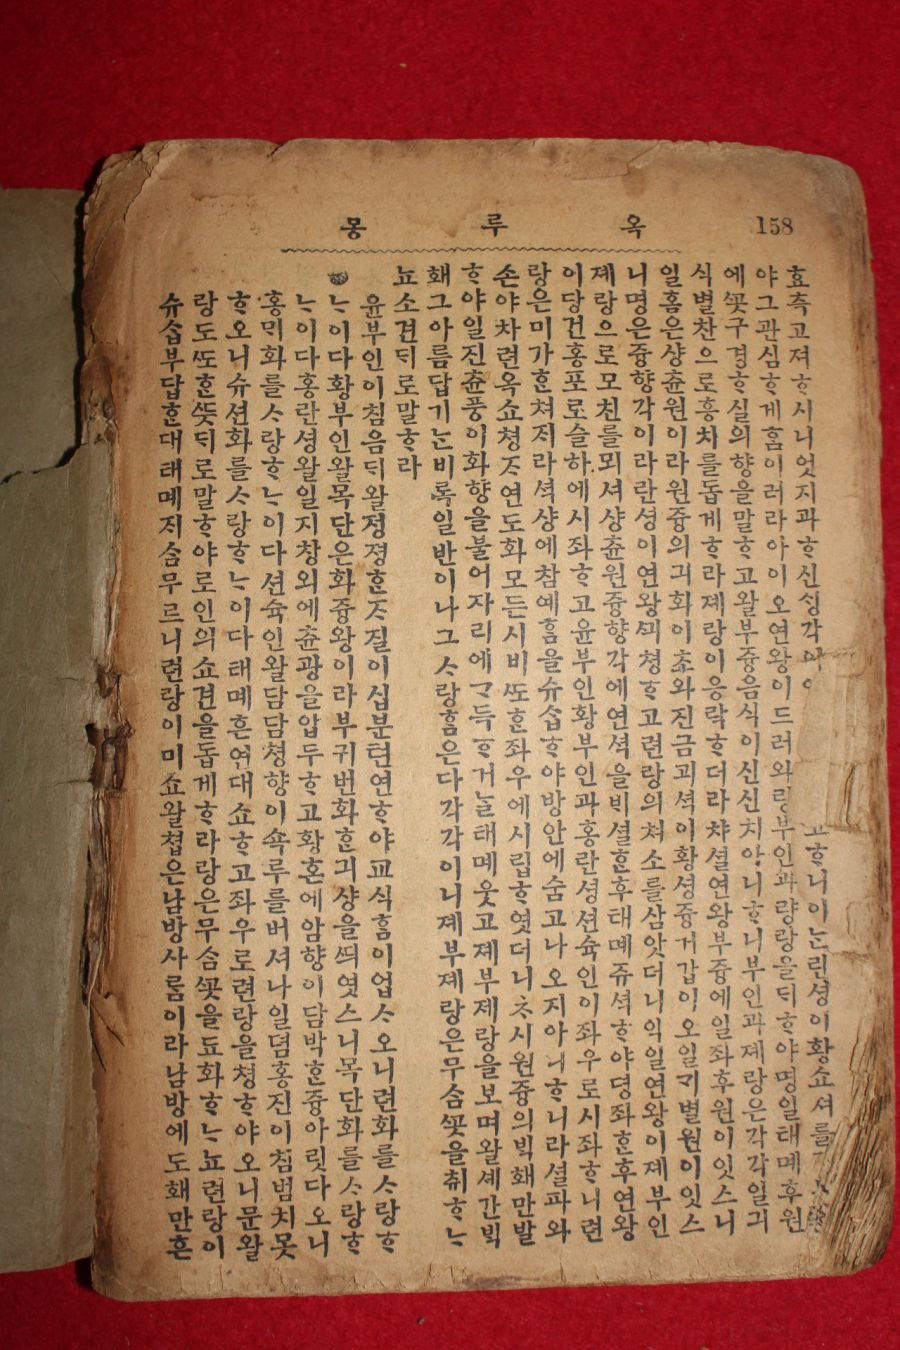 158
옥루몽
효측고져ᄒᆞ시니엇지과ᄒᆞ신ᄉᆡᆼ각 고ᄒᆞ니이ᄂᆞᆫ린셩이황쇼져를
야그관심ᄒᆞ게ᄒᆞᆷ이러라아이오연왕이드러와 부인과량랑을ᄃᆡᄒᆞ야명일태ᄆᆡ후원
에ᄭᅩᆺ구경ᄒᆞ실의향을말ᄒᆞ고왈부즁음식이신신치아니ᄒᆞ니부인과졔랑은각각일긔
식별찬으로흥치를돕게ᄒᆞ라졔랑이응락ᄒᆞ더라챠셜연왕부즁에일좌후원이잇스니
일홈은샹츈원이라원즁의긔화이초와진금괴셕이황셩즁거갑이오일ᄀᆡ별원이잇스
니명은즁향각이라란셩이연왕ᄭᅴ쳥ᄒᆞ고련랑의쳐소를삼앗더니익일연왕이졔부인
졔랑으로모친를뫼셔샹츈원즁향각에연셕을ᄇᆡ셜ᄒᆞᆫ후태ᄆᆡ쥬셕ᄒᆞ야뎡좌ᄒᆞᆫ후연왕
이당건홍포로슬하에시좌ᄒᆞ고윤부인황부인과홍란셩션슉인이좌우로시좌ᄒᆞ니련
랑은미가ᄒᆞᆫ쳐ᄌᆡ라셕샹에참예ᄒᆞᆷ을슈습ᄒᆞ야방안에숨고나오지아니ᄒᆞ니라셜파와
손야차련옥쇼쳥ᄌᆞ연도화모든시비ᄯᅩᄒᆞᆫ좌우에시립ᄒᆞ엿더니ᄎᆞ시원즁의ᄇᆡᆨ홰만발
ᄒᆞ야일진츈풍이화향을불어자리에ᄀᆞ득ᄒᆞ거ᄂᆞᆯ태ᄆᆡ웃고졔부졔랑을보며왈셰간ᄇᆡᆨ
홰그아름답기ᄂᆞᆫ비록일반이나그ᄉᆞ랑ᄒᆞᆷ은다각각이니졔부졔랑은무ᄉᆞᆷᄭᅩᆺ을취ᄒᆞᄂᆞ
뇨소견ᄃᆡ로말ᄒᆞ라
윤부인이침음ᄃᆡ왈졍졍ᄒᆞᆫᄌᆞ질이십분텬연ᄒᆞ야교식ᄒᆞᆷ이업ᄉᆞ오니련화를ᄉᆞ랑ᄒᆞ
ᄂᆞ이다황부인왈목단은화즁왕이라부귀번화ᄒᆞᆫ긔샹을ᄯᅴ엿스니목단화를ᄉᆞ랑ᄒᆞ
ᄂᆞ이다홍란셩왈일지창외에츈광을압두ᄒᆞ고황혼에암향이담박ᄒᆞᆫ즁아릿다오니
홍ᄆᆡ화를ᄉᆞ랑ᄒᆞᄂᆞ이다션슉인왈담담쳥향이속루를버셔나일뎜홍진이침범치못
ᄒᆞ오니슈션화를ᄉᆞ랑ᄒᆞᄂᆞ이다태ᄆᆡ흔연대쇼ᄒᆞ고좌우로련랑을쳥ᄒᆞ야오니문왈
랑도ᄯᅩᄒᆞᆫᄯᅳᆺᄃᆡ로말ᄒᆞ야로인의쇼견을돕게ᄒᆞ라랑은무ᄉᆞᆷᄭᅩᆺ을됴화ᄒᆞᄂᆞ뇨련랑이
슈습부답ᄒᆞᆫ대태ᄆᆡᄌᆡ숨무르니련랑이미쇼왈쳡은남방사ᄅᆞᆷ이라남방에도홰만흔